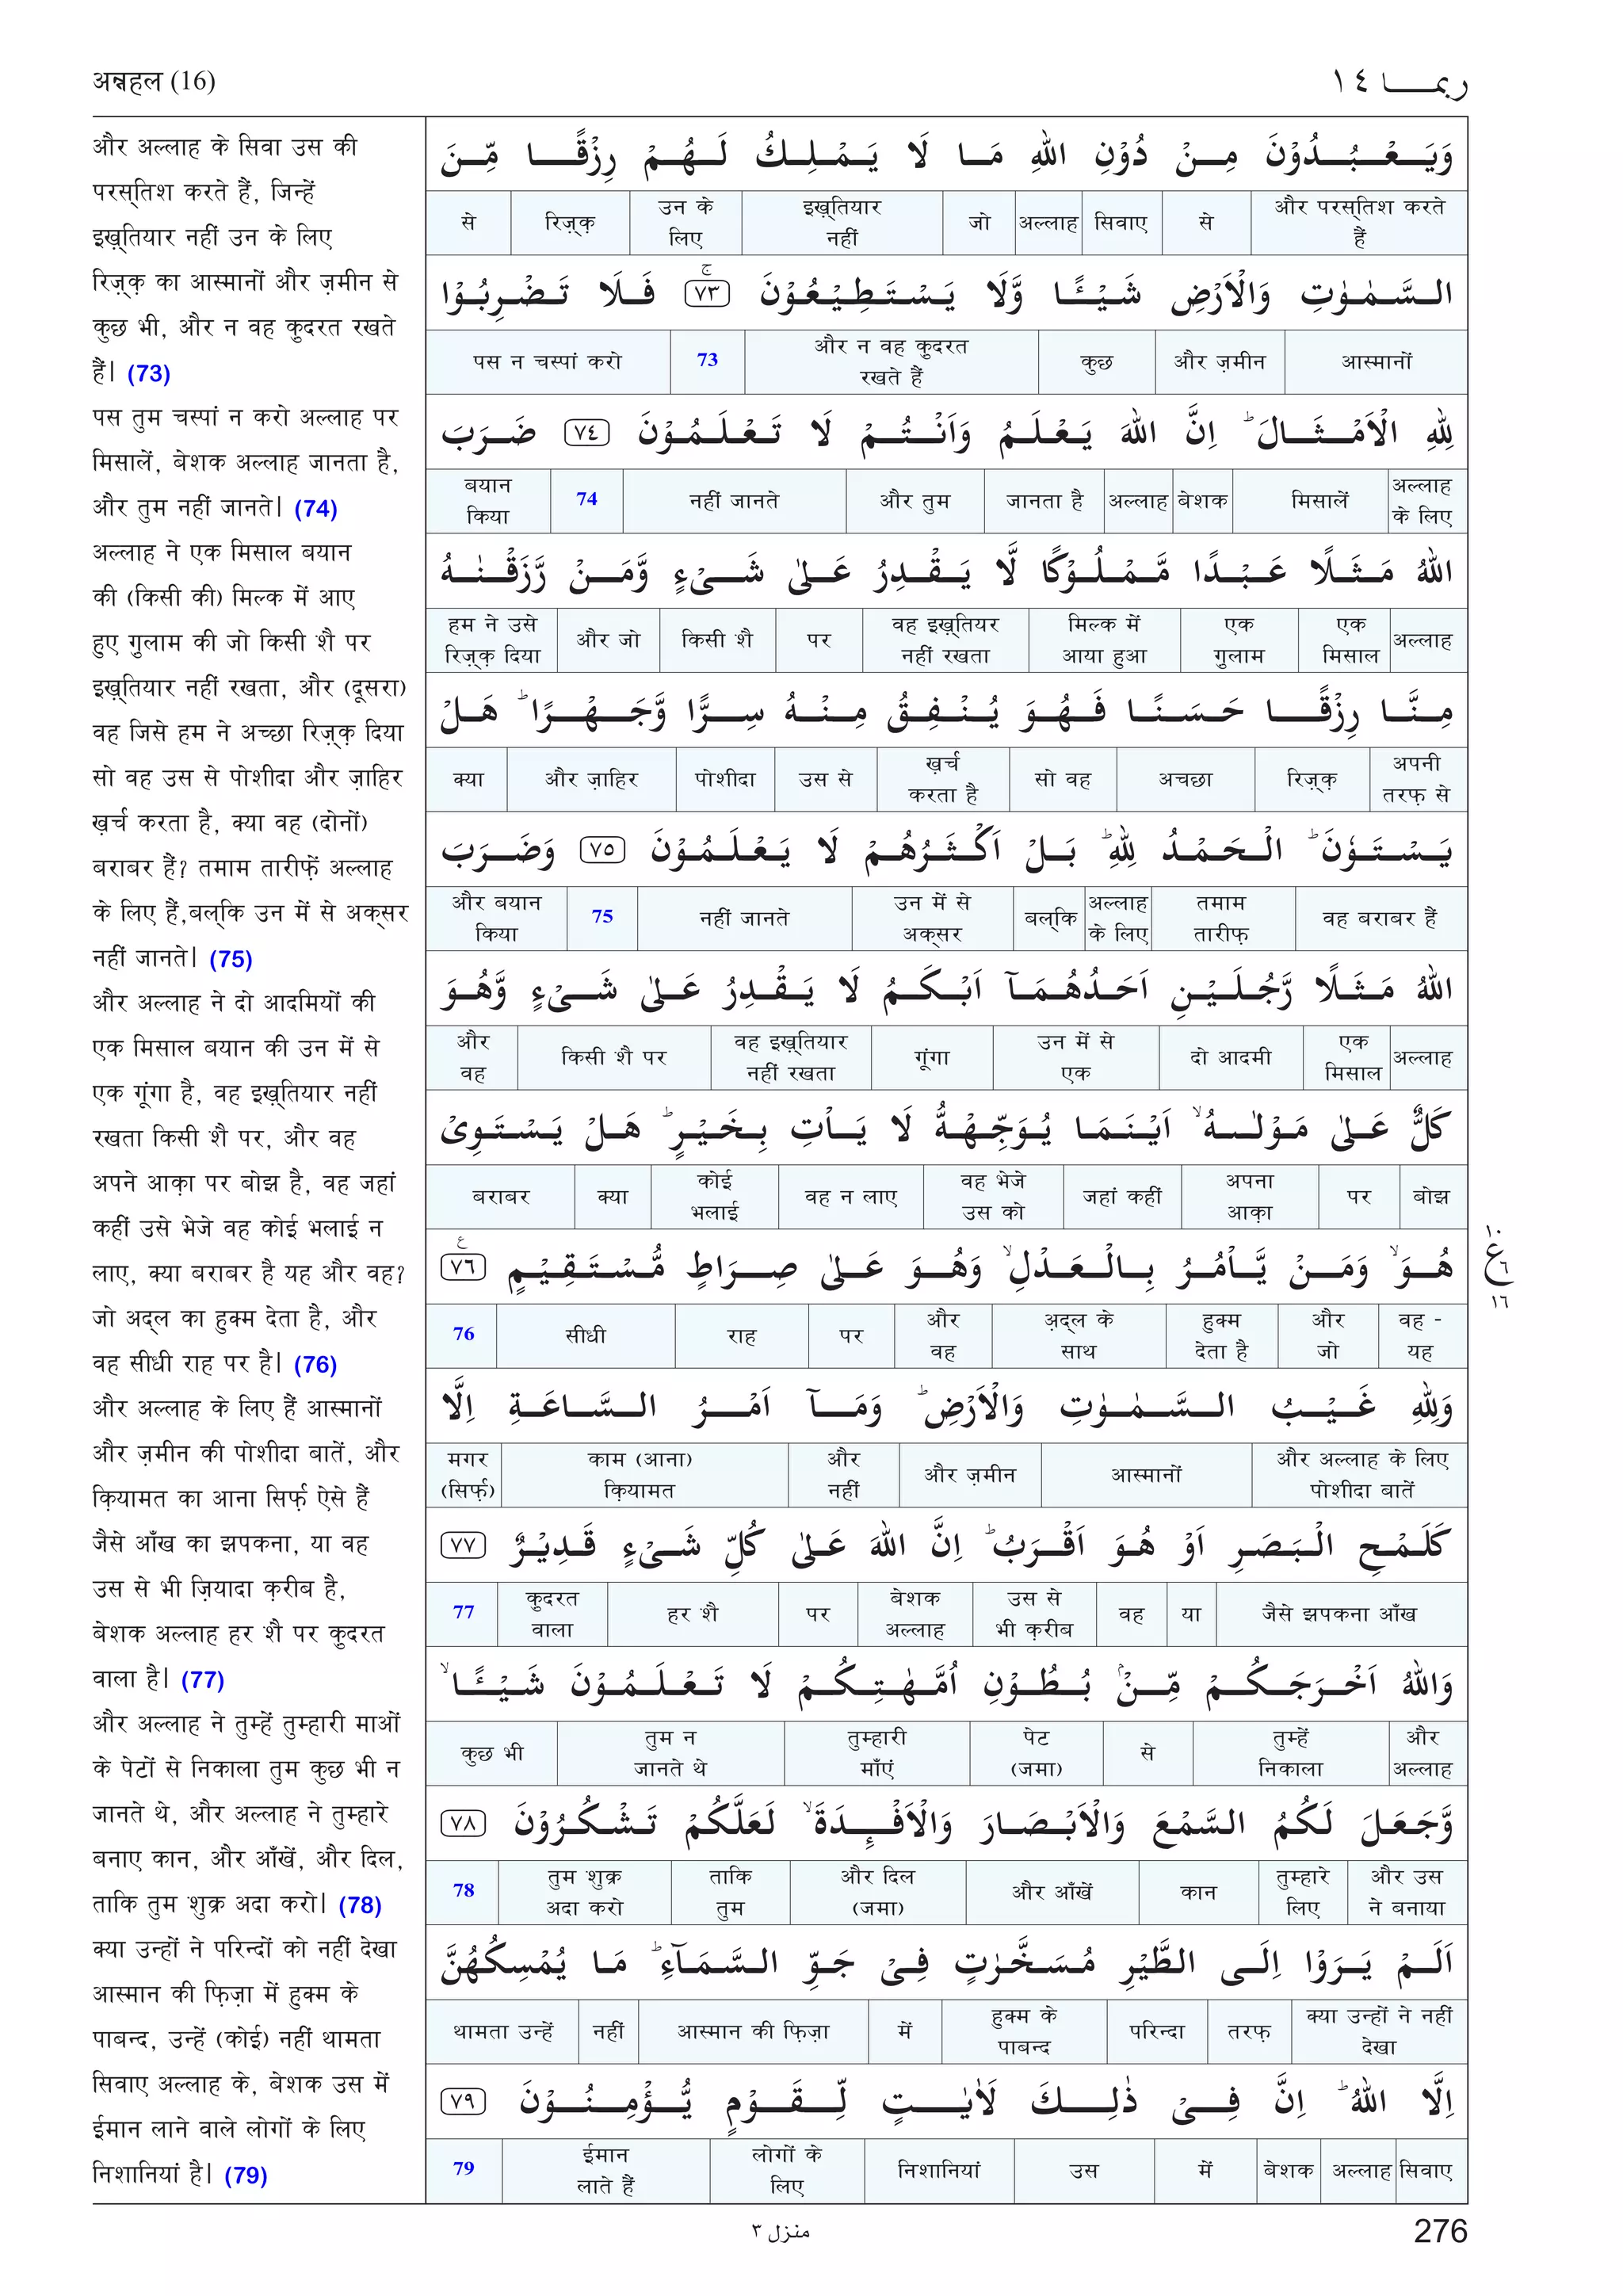 अन्नहल (16)
ربما ١٤
और अल्लाह के सिवा उस की
परस्तिश करते हैं, जिन्हें
इख़्तियार नहीं उन के लिए
रिज़्क़ का आस्मानों और ज़मीन से
कुछ भी, और न वह कुदरत रखते
हैं। (73)
पस तुम चस्पां न करो अल्लाह पर
मिसालें, बेशक अल्लाह जानता है,
और तुम नहीं जानते। (74)
अल्लाह ने एक मिसाल बयान
की (किसी की) मिल्क में आए
हुए गुलाम की जो किसी शै पर
इख़्तियार नहीं रखता, और (दूसरा)
वह जिसे हम ने अच्छा रिज़्क़ दिया
सो वह उस से पोशीदा और ज़ाहिर
ख़र्च करता है, क्या वह (दोनों)
बराबर हैं? तमाम तारीफ़ें अल्लाह
के लिए हैं,बल्कि उन में से अक्सर
नहीं जानते। (75)
और अल्लाह ने दो आदमियों की
एक मिसाल बयान की उन में से
एक गूंगा है, वह इख़्तियार नहीं
रखता किसी शै पर, और वह
अपने आक़ा पर बोझ है, वह जहां
कहीं उसे भेजे वह कोई भलाई न
लाए, क्या बराबर है यह और वह?
जो अद्ल का हुक्म देता है, और
वह सीधी राह पर है। (76)
और अल्लाह के लिए हैं आस्मानों
और ज़मीन की पोशीदा बातें, और
क़ियामत का आना सिर्फ़ ऐसे हैं
जैसे आँख का झपकना, या वह
उस से भी ज़ियादा क़रीब है,
बेशक अल्लाह हर शै पर कुदरत
वाला है। (77)
और अल्लाह ने तुम्हें तुम्हारी माओं
के पेटों से निकाला तुम कुछ भी न
जानते थे, और अल्लाह ने तुम्हारे
बनाए कान, और आँखें, और दिल,
ताकि तुम शुक्र अदा करो। (78)
क्या उन्हों ने परिन्दों को नहीं देखा
आस्मान की फ़िज़ा में हुक्म के
पाबन्द, उन्हें (कोई) नहीं थामता
सिवाए अल्लाह के, बेशक उस में
ईमान लाने वाले लोगों के लिए
निशानियां है। (79)
وَيَعْبُدُوْنَ مِنْ دُوْنِ اللّٰهِ مَا لَا يَمْلِكُ لَهُمْ رِزْقًا مِّنَ
और परस्तिश करते हैं | से | सिवाए | अल्लाह | जो | इख़्तियार नहीं | उन के लिए | रिज़्क़ | से
السَّمٰوٰتِ وَالْاَرْضِ شَيْـًٔا وَّلَا يَسْتَطِيْعُوْنَ ۚ ٧٣ فَلَا تَضْرِبُوْا
आस्मानों | और ज़मीन | कुछ | और न वह कुदरत रखते हैं | 73 | पस न चस्पां करो
لِلّٰهِ الْاَمْثَالَ ؕ اِنَّ اللّٰهَ يَعْلَمُ وَاَنْتُمْ لَا تَعْلَمُوْنَ ٧٤ ضَرَبَ
अल्लाह के लिए | मिसालें | बेशक | अल्लाह | जानता है | और तुम | नहीं जानते | 74 | बयान किया
اللّٰهُ مَثَلًا عَبْدًا مَّمْلُوْكًا لَّا يَقْدِرُ عَلٰى شَىْءٍ وَّمَنْ رَّزَقْنٰهُ
अल्लाह | एक मिसाल | एक गुलाम | मिल्क में आया हुआ | वह इख़्तियर नहीं रखता | पर | किसी शै | और जो | हम ने उसे रिज़्क़ दिया
مِنَّا رِزْقًا حَسَنًا فَهُوَ يُنْفِقُ مِنْهُ سِرًّا وَّجَهْرًا ؕ هَلْ
अपनी तरफ़ से | रिज़्क़ | अच्छा | सो वह | ख़र्च करता है | उस से | पोशीदा | और ज़ाहिर | क्या
يَسْتَوٗنَ ؕ اَلْحَمْدُ لِلّٰهِ ؕ بَلْ اَكْثَرُهُمْ لَا يَعْلَمُوْنَ ٧٥ وَضَرَبَ
वह बराबर हैं | तमाम तारीफ़ | अल्लाह के लिए | बल्कि | उन में से अक्सर | नहीं जानते | 75 | और बयान किया
اللّٰهُ مَثَلًا رَّجُلَيْنِ اَحَدُهُمَآ اَبْكَمُ لَا يَقْدِرُ عَلٰى شَىْءٍ وَّهُوَ
अल्लाह | एक मिसाल | दो आदमी | उन में से एक | गूंगा | वह इख़्तियार नहीं रखता | किसी शै पर | और वह
كَلٌّ عَلٰى مَوْلٰىهُ ۙ اَيْنَمَا يُوَجِّهْهُّ لَا يَاْتِ بِخَيْرٍ ؕ هَلْ يَسْتَوِىْ
बोझ | पर | अपना आक़ा | जहां कहीं | वह भेजे उस को | वह न लाए | कोई भलाई | क्या | बराबर
هُوَ ۙ وَمَنْ يَّاْمُرُ بِالْعَدْلِ ۙ وَهُوَ عَلٰى صِرَاطٍ مُّسْتَقِيْمٍ ٧٦ ع
वह - यह | और जो | हुक्म देता है | अ़द्ल के साथ | और वह | पर | राह | सीधी | 76
١٠ ع ٦ ١٦
وَلِلّٰهِ غَيْبُ السَّمٰوٰتِ وَالْاَرْضِ ؕ وَمَآ اَمْرُ السَّاعَةِ اِلَّا
और अल्लाह के लिए पोशीदा बातें | आस्मानों | और ज़मीन | और नहीं | काम (आना) क़ियामत | मगर (सिर्फ़)
كَلَمْحِ الْبَصَرِ اَوْ هُوَ اَقْرَبُ ؕ اِنَّ اللّٰهَ عَلٰى كُلِّ شَىْءٍ قَدِيْرٌ ٧٧
जैसे झपकना आँख | या | वह | उस से भी क़रीब | बेशक अल्लाह | पर | हर शै | कुदरत वाला | 77
وَاللّٰهُ اَخْرَجَكُمْ مِّنْۢ بُطُوْنِ اُمَّهٰتِكُمْ لَا تَعْلَمُوْنَ شَيْـًٔا ۙ
और अल्लाह | तुम्हें निकाला | से | पेट (जमा) | तुम्हारी माँएं | तुम न जानते थे | कुछ भी
وَّجَعَلَ لَكُمُ السَّمْعَ وَالْاَبْصَارَ وَالْاَفْـِٕدَةَ ۙ لَعَلَّكُمْ تَشْكُرُوْنَ ٧٨
और उस ने बनाया | तुम्हारे लिए | कान | और आँखें | और दिल (जमा) | ताकि तुम | तुम शुक्र अदा करो | 78
اَلَمْ يَرَوْا اِلَى الطَّيْرِ مُسَخَّرٰتٍ فِىْ جَوِّ السَّمَآءِ ؕ مَا يُمْسِكُهُنَّ
क्या उन्हों ने नहीं देखा | तरफ़ | परिन्दा | हुक्म के पाबन्द | में | आस्मान की फ़िज़ा | नहीं | थामता उन्हें
اِلَّا اللّٰهُ ؕ اِنَّ فِىْ ذٰلِكَ لَاٰيٰتٍ لِّقَوْمٍ يُّؤْمِنُوْنَ ٧٩
सिवाए | अल्लाह | बेशक | में | उस | निशानियां | लोगों के लिए | ईमान लाते हैं | 79
منزل ٣
276